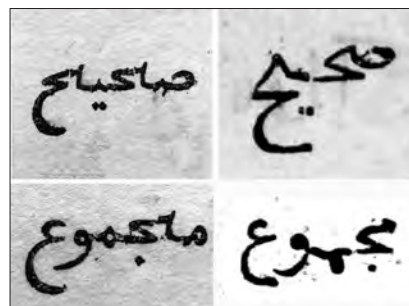 صحيح صحيح
مجموع مجموع